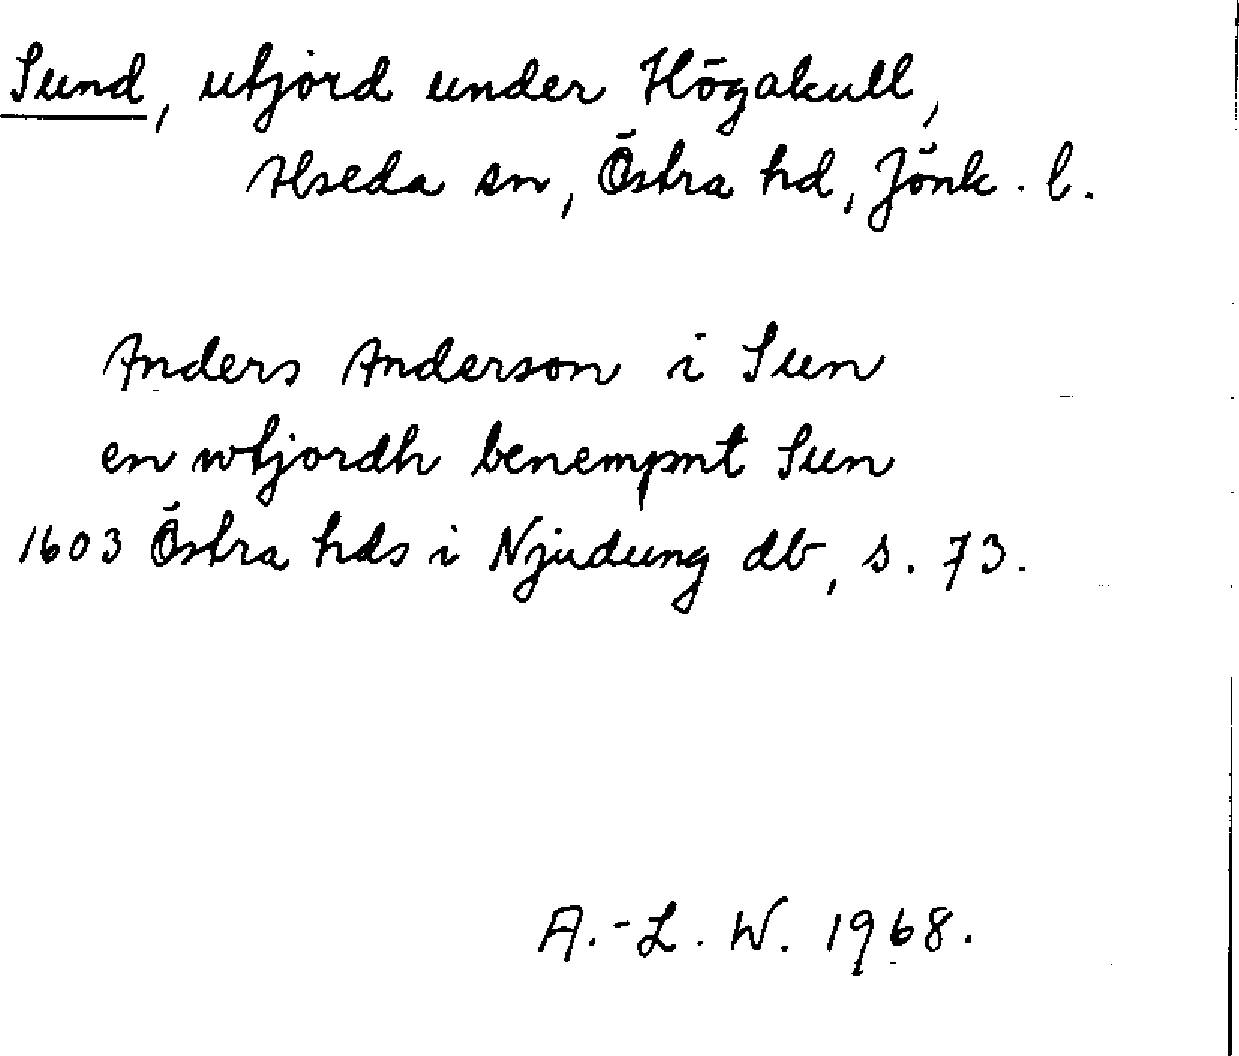 Sund, utjord under Högakull,
Alseda sn, Östra hd, Jönk. l.
Anders Anderson i Sun
en wtjordh benempnt Sun
1603 Östra hds i Njudung db, s. 73.
A.-L. W. 1968.